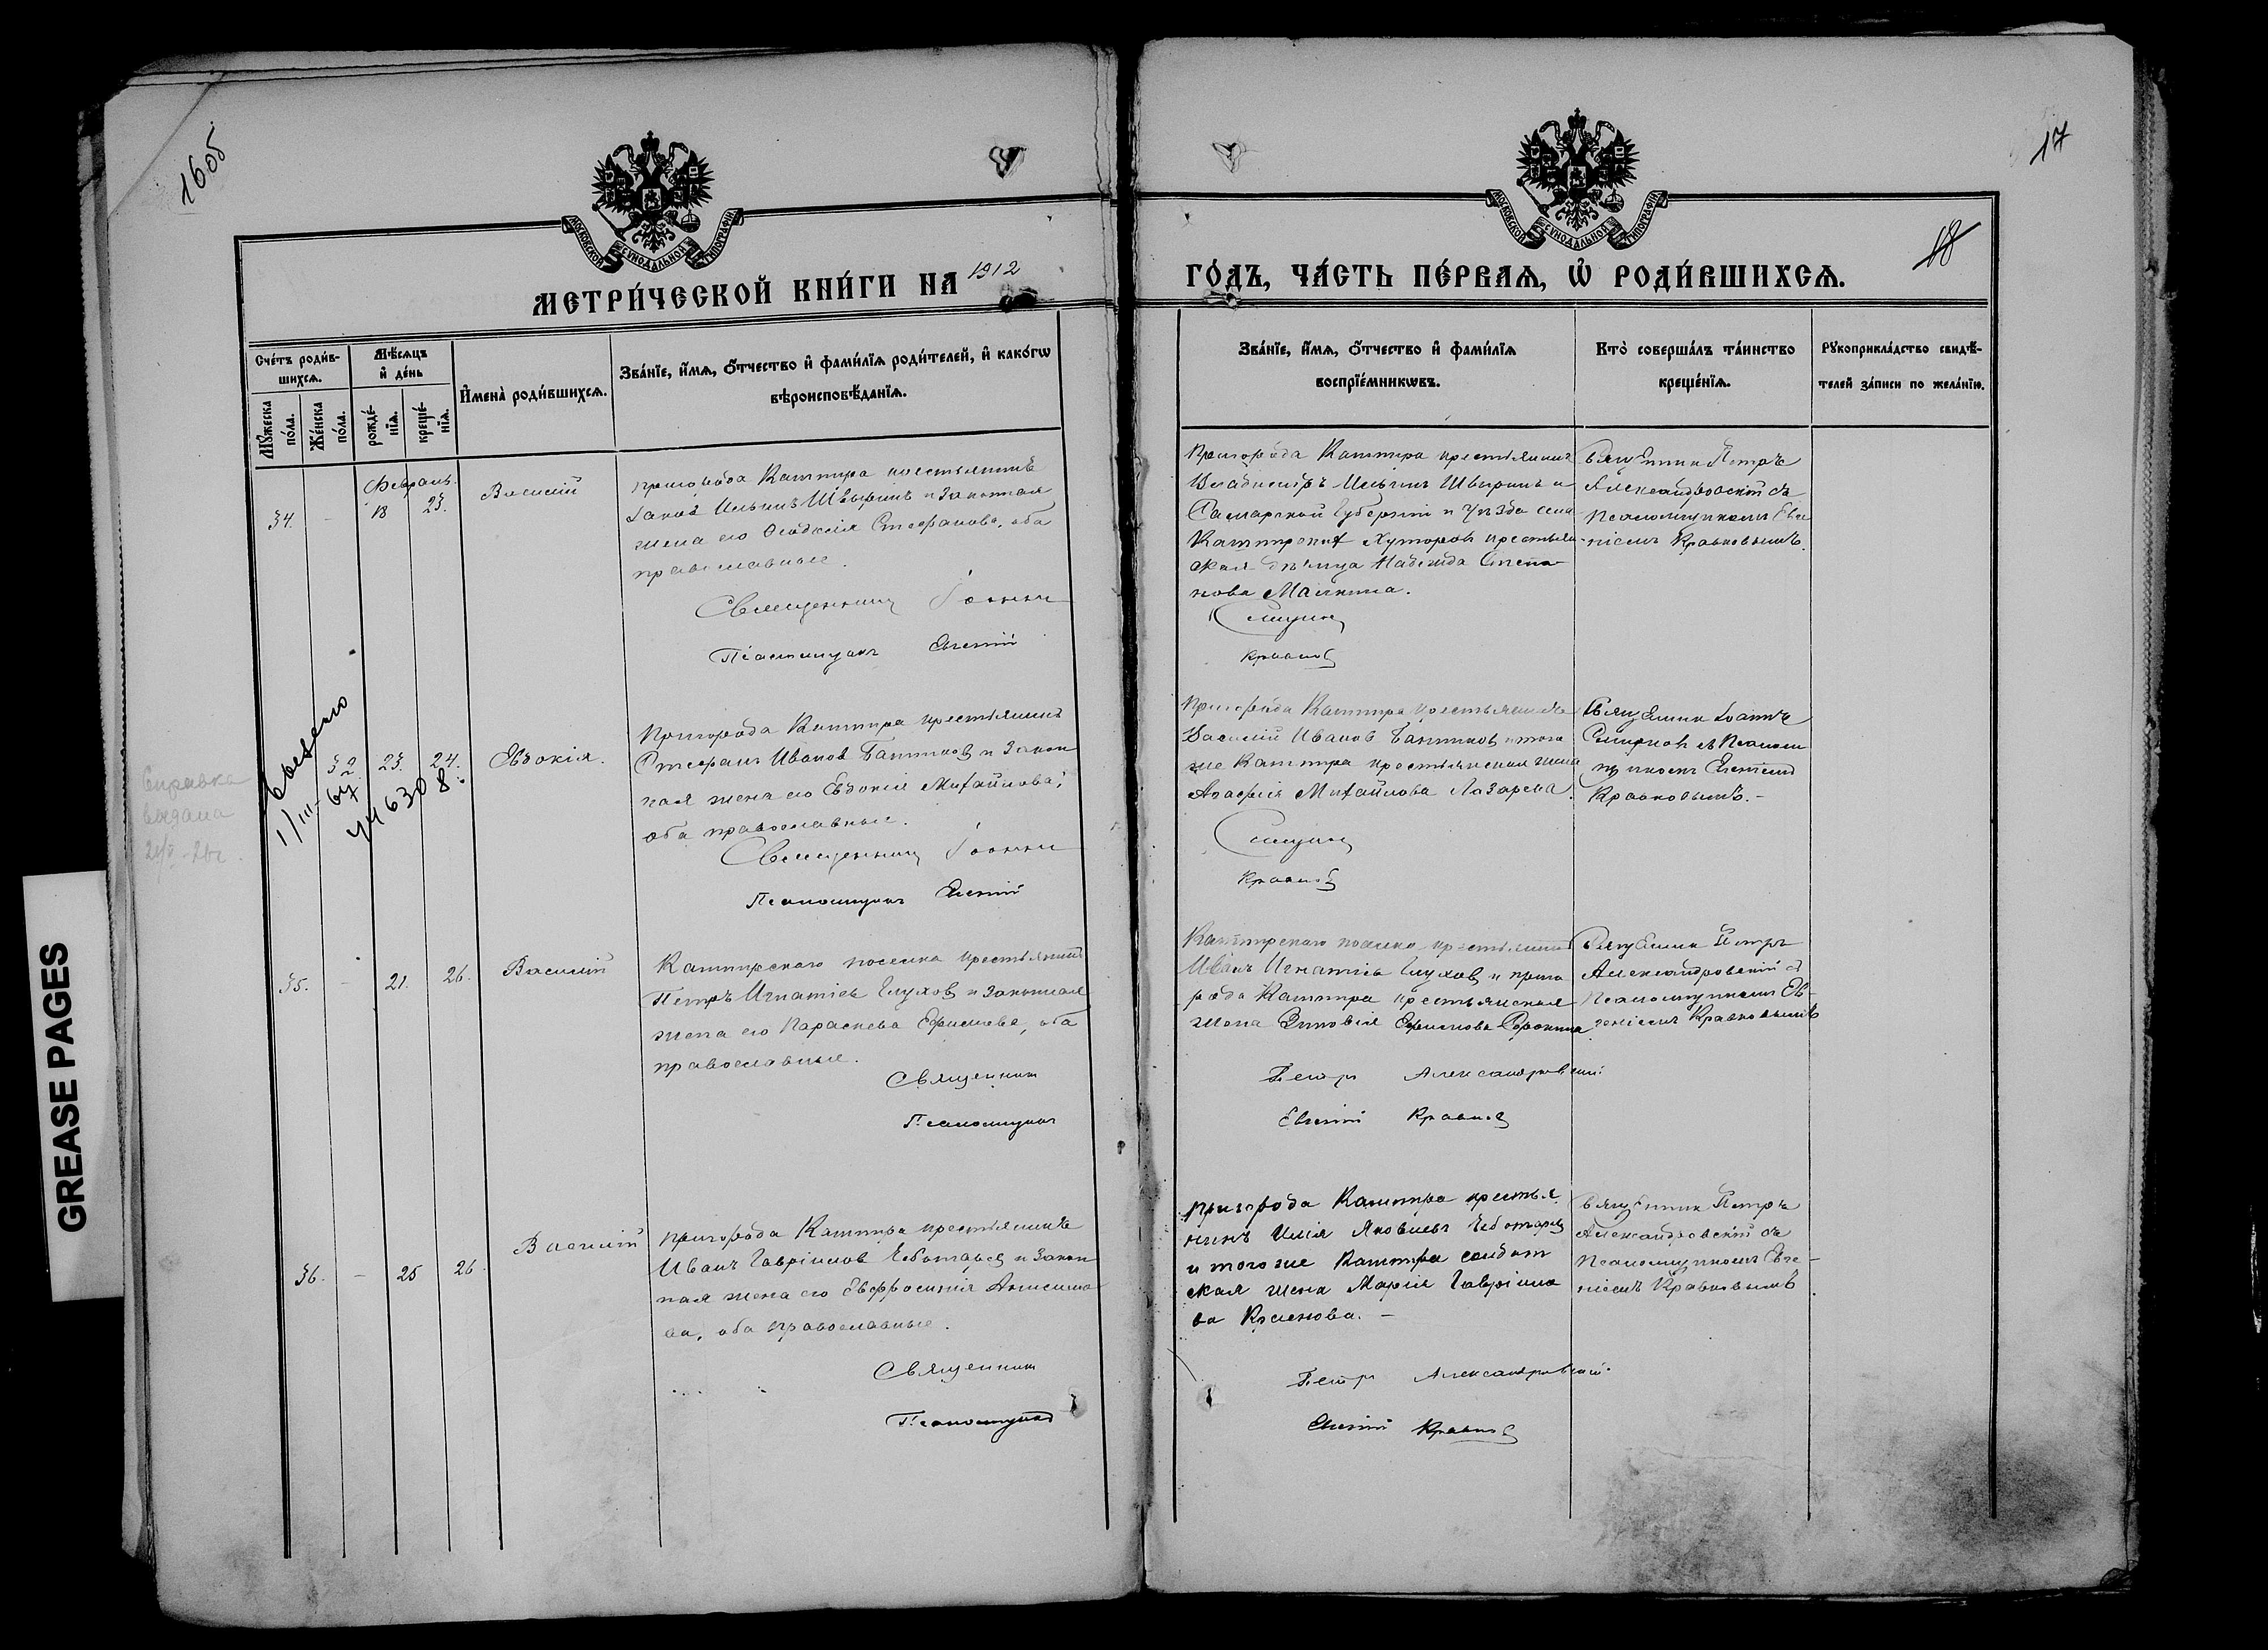 16об
17
18
МОСКОВСКОЙ СУНОДАЛЬНОЙ ТИПОГРАФІИ
МОСКОВСКОЙ СУНОДАЛЬНОЙ ТИПОГРАФІИ
МЕТРИ́ЧЕСКОЙ КНИ́ГИ НА 1912
ГО́ДЪ, ЧА́СТЬ ПЕ́РВАѦ, Ѡ҆ РОДИ́ВШИХСѦ.
Сче́тъ роди́в-
шихсѧ.
Мѣ́сѧцъ
и҆ де́нь
Мꙋ́жеска
по́ла.
Же́нска
по́ла.
рожде́-
нїѧ.
креще́-
нїѧ.
И҆мена̀ роди́вшихсѧ.
Зва́нїе, и҆́мѧ, ѻ҆́тчество и҆ фами́лїѧ роди́телей, и҆ како́гѡ
вѣроисповѣ́данїѧ.
Зва́нїе, и҆́мѧ, ѻ҆́тчество и҆ фами́лїѧ
воспрїе́мникѡвъ.
Кто̀ соверша́лъ та́инство
креще́нїѧ.
Рꙋкоприкла́дство свидѣ́-
телей за́писи по жела́нїю.
Февраль.
34.
-
18
23.
Василій
пригорода Каштира крестьянинъ
Іаковъ Ильинъ Швыринъ и законная
жена его Ѳеодосія Стефанова, оба
православные.
Священникъ Іоаннъ
Псаломщикъ Евгеній
Пригорода Каштира крестьянинъ
Владиміръ Ильинъ Швыринъ и
Самарской губерніи и уѣзда села
хуторовъ крестьян-
ская дѣвица Надежда Степа-
нова Малкина.
Смирнов
Кравков
Священникъ Петръ
Александровскій съ
Псаломщикомъ Евге-
ніемъ Кравковымъ.
Справка
выдана
Выслано
1/III-67
УЧ 6308
32.
23.
24.
Евдокія.
Пригорода Каштира крестьянинъ
Стефанъ Ивановъ и закон
ная жена его Евдокія Михайлова,
оба православные.
Священникъ Іоаннъ
Псаломщикъ Евгеній
Пригорода Каштира крестьянинъ
Василій Ивановъ и того
же Каштира крестьянская жена
Агафія Михайлова Лазарева.
Смирнов
Кравков
Священникъ Іоаннъ
Смирновъ съ Псалом
щикомъ Евгеніемъ
Кравковымъ.-
35.
-
21.
26.
Василій
Каштирскаго поселка крестьянинъ
Петръ Игнатіевъ Глуховъ и законная
жена его Параскева Ефимова, оба
православные.
Священникъ
Псаломщикъ
Каштирскаго поселка крестьянинъ
Иванъ Игнатіевъ Глуховъ и приго
рода Каштира крестьянская
жена Зиновія Ефимова Сорокина.
Петръ Александровскій.
Евгеній Кравков
Священникъ Петръ
Александровскій съ
Псаломщикомъ Ев-
геніемъ Кравковымъ
36.
-
25
26.
Василій
пригорода Каштира крестьянинъ
Иванъ Гавріиловъ Чеботаревъ и закон
ная жена его Евфросинія Анисимо
ва, оба православные.
Священникъ
Псаломщикъ
Пригорода Каштира крестья
нинъ Илія Яковлевъ Чеботаревъ
и того же Каштира солдат
ская жена Марія Гавріило
ва. -
Петръ Александровскій.
Евгеній Кравков
Священникъ Петръ
Александровскій съ
Псаломщикомъ Евге-
ніемъ Кравковымъ.
GREASE PAGES